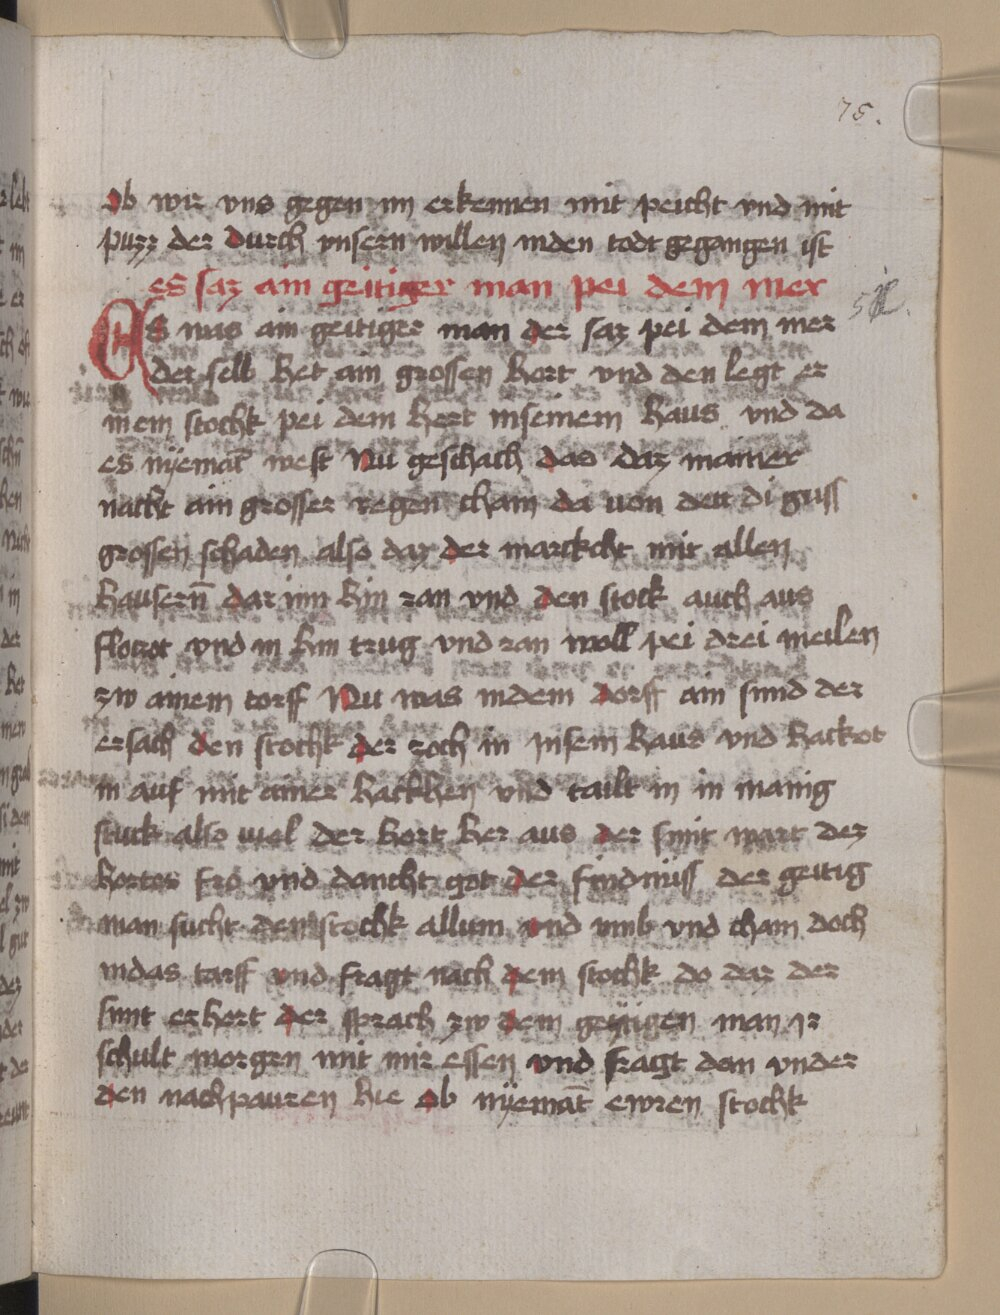 75.
ob wir vns gegen im erkennen mit peicht vnd mit
puzz der durch vnsern willen inden todt gegangen ist
es saz ain geitiger man pei dem mer
ES was ain geitiger man der saz pei dem mer
der selb het ain grossen hort vnd den legt er
in ein stochk pei dem hert inseinem haus vnd da
es nyemāt west Nu geschach das daz mainer
nacht ain grosser regen cham da von den di guss
grossen schaden also daz der marckcht mit allen
hausern̄ dar inn hin ran vnd den stock auch aus
flozot vnd in hin trug vnd ran woll pei drei meilen
zw ainem torff Nu was indem dorff ain smid der
ersach den stochk der zoch in insein haus vnd hackot
in auf mit ainer hackhen vnd tailt in in manig
stuk also viel der hort her aus der smit wart dez
hortes fro vnd dancht got der findnuss der geitig
man sucht den stochk allum vnd vmb vnd cham doch
indas tarff vnd fragt nach dem stochk do daz der
smit erhort der sprach zw dem geytigen man ir
schult morgen mit mir essen vnd fragt dan vnder
den nachpauren hie ob nyemāt ewren stochk